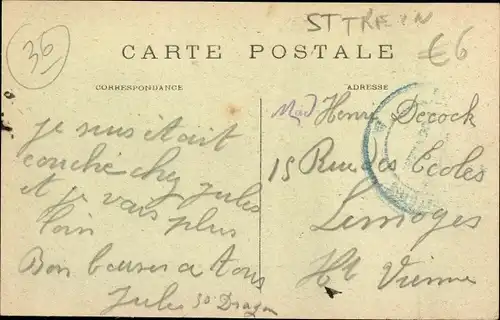 36
ST TREIN
€6
CARTE POSTALE
CORRESPONDANCE
ADRESSE
je suis était
couché chez Jules
et je vais plus
loin
Bon baiser a tous
Jules 30 Dragon
Mad Henri Decock
15 Rue des Ecoles
Limoges
Hte Vienne